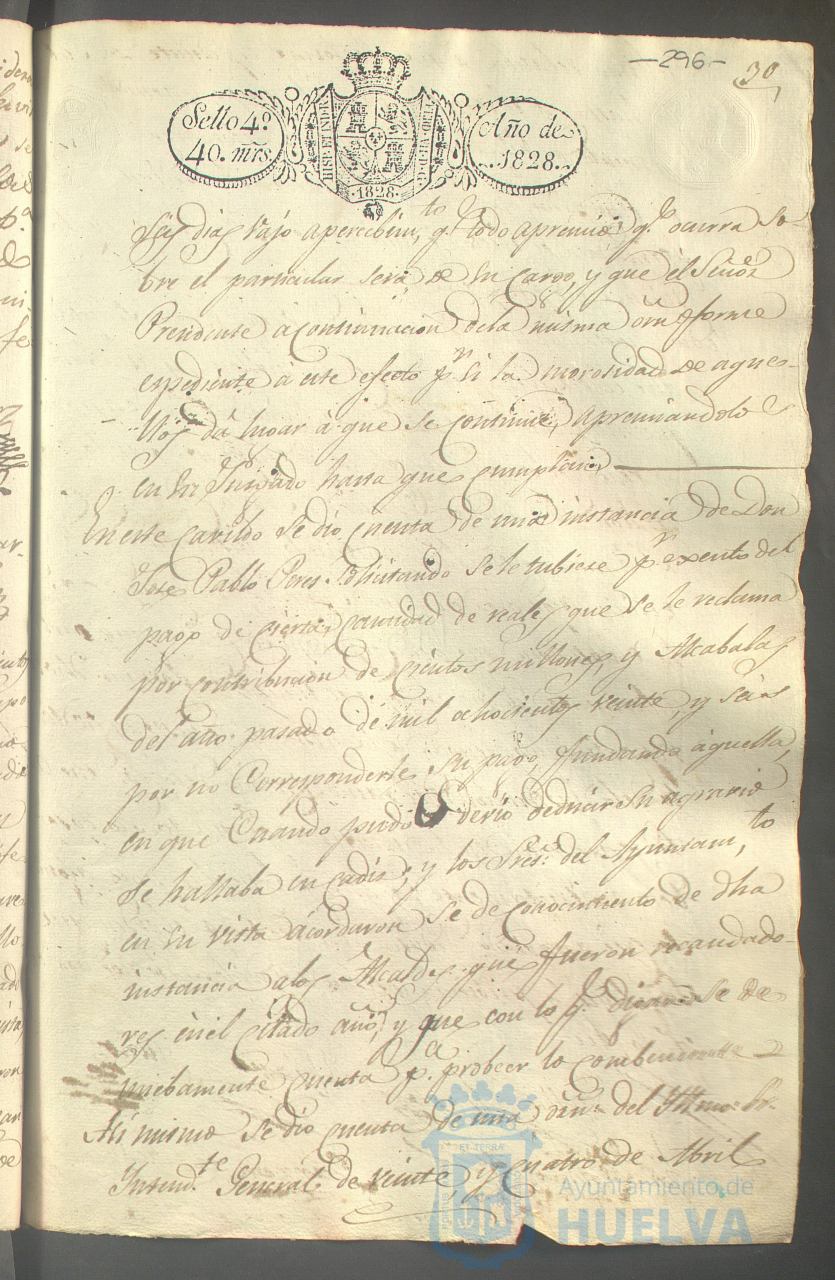 -296-
30
Sello 4º
40. mrs.
HISP. ET IND. R
FERD. VII. D. G.
·1828·
Año de
1828.
seis dias bajo apercibim.to q.e todo apremio q.e ocurra so-
bre el particular será de su cargo, y que el Señor
Presidente à continuacion dela misma orn forme
espediente à este efecto p.r si la morosidad de aque-
llos dá lugar à que se continue, apremiandolo
en su Juzgado hasta que cumplan
En este Cavildo se dio cuenta de una instancia de Don
Jose Pablo Peres solicitando se le tubiese p.r exento del
pago de cierta cantidad de reales que se le reclama
por contribucion de cientos millones, y Alcabalas
del año pasado de mil ochocientos veinte, y seis
por no corresponderle su pago, fundando aquella,
en que cuando pudo y devio deducir su agravio
se hallaba en Cadiz, y los Sres. del Ayuntam,to
en su vista acordaron se de conocimiento de dha
instancia alos Alcaldes que fueron recaudado-
res en el citado año, y que con lo q.e digan se dé
nuebamente cuenta p.a probeer lo combeniente
Asi mismo se dio cuenta de una orn. del Yltmo. Sr.
Intend.te General de veinte y cuatro de Abril
ET TERRA
Ayuntamiento de
HUELVA